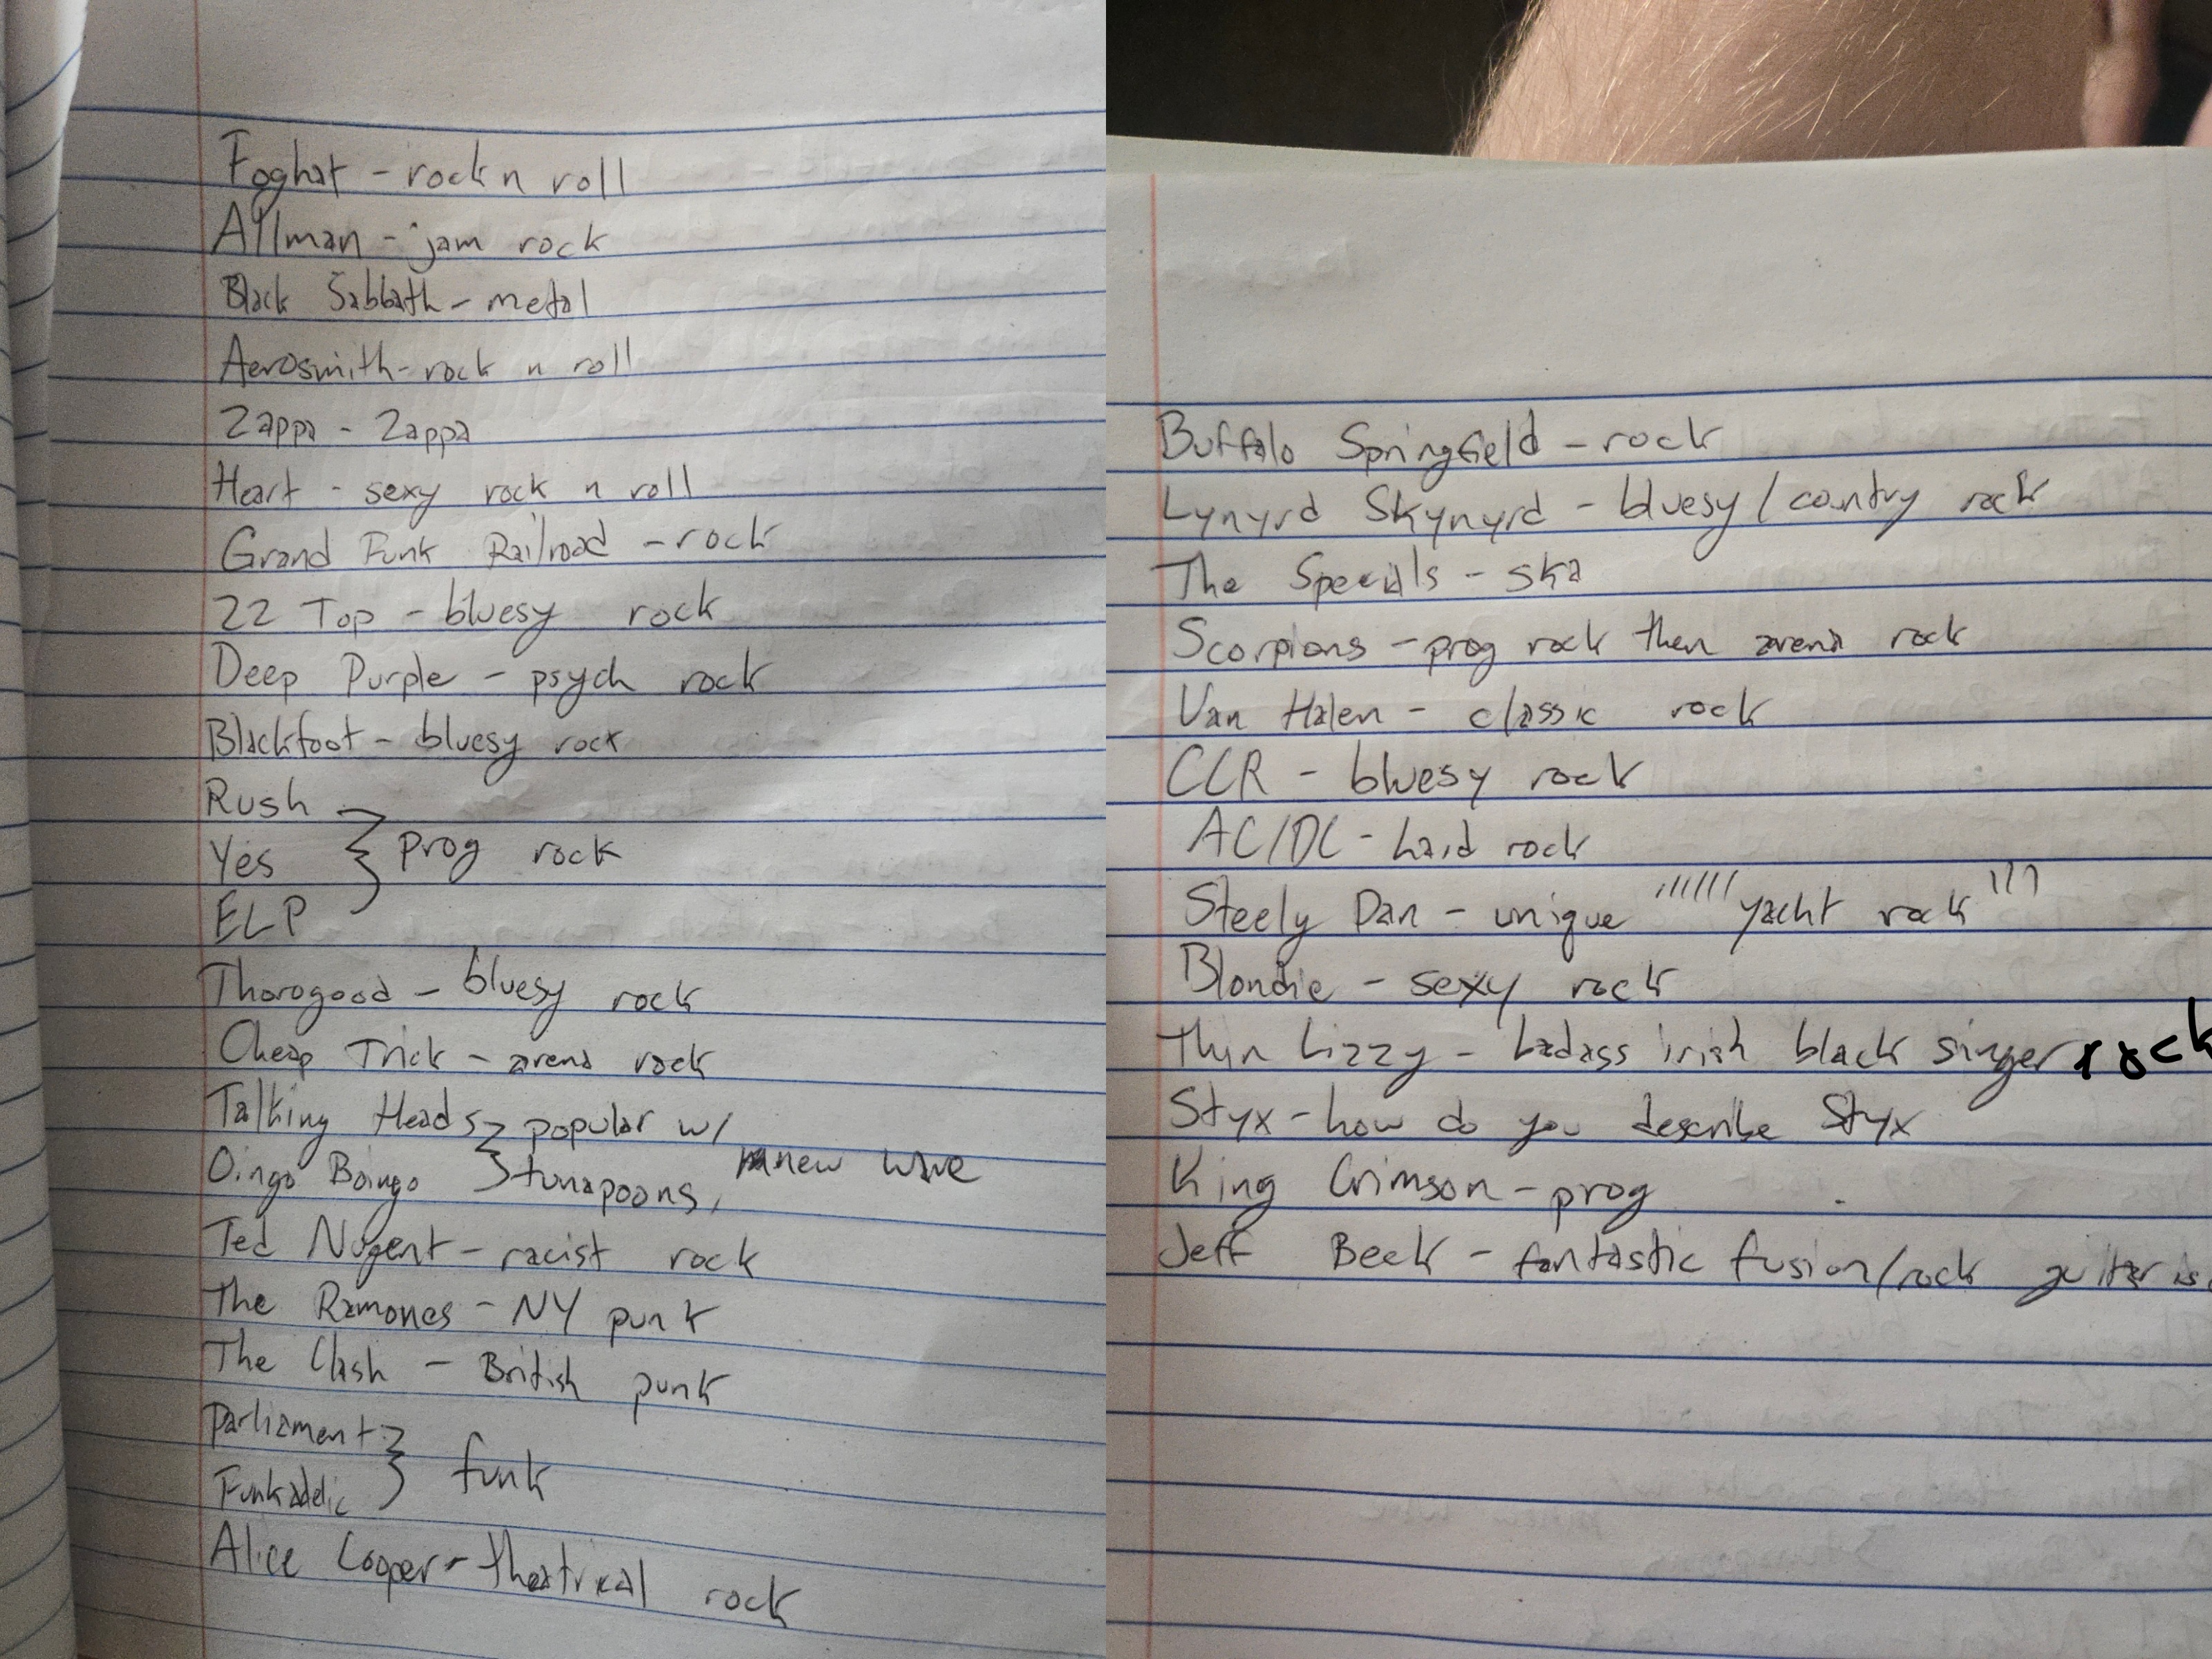 Foghat - rock n roll
Allman - jam rock
Black Sabbath - metal
Aerosmith - rock n roll
Zappa - Zappa
Heart - sexy rock n roll
Grand Funk Railroad - rock
ZZ Top - bluesy rock
Deep Purple - psych rock
Blackfoot - bluesy rock
Rush
Yes } prog rock
ELP
Thorogood - bluesy rock
Cheap Trick - arena rock
Talking Heads } popular w/
Oingo Boingo } stunapoons, new wave
Ted Nugent - racist rock
The Ramones - NY punk
The Clash - British punk
Parliament } funk
Funkadelic
Alice Cooper - theatrical rock
Buffalo Springfield - rock
Lynyrd Skynyrd - bluesy/country rock
The Specials - ska
Scorpions - prog rock then arena rock
Van Halen - classic rock
CCR - bluesy rock
AC/DC - hard rock
Steely Dan - unique """yacht rock"'
Blondie - sexy rock
Thin Lizzy - badass irish black singer rock
Styx - how do you describe Styx
King Crimson - prog
Jeff Beck - fantastic fusion/rock guitaris